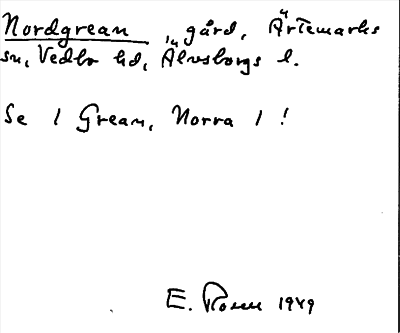 Nordgrean, gård, Ärtemarks
sn, Vedbo hd, Älvsborgs l.
Se / Grean, Norra / !
E. Rosen 1949